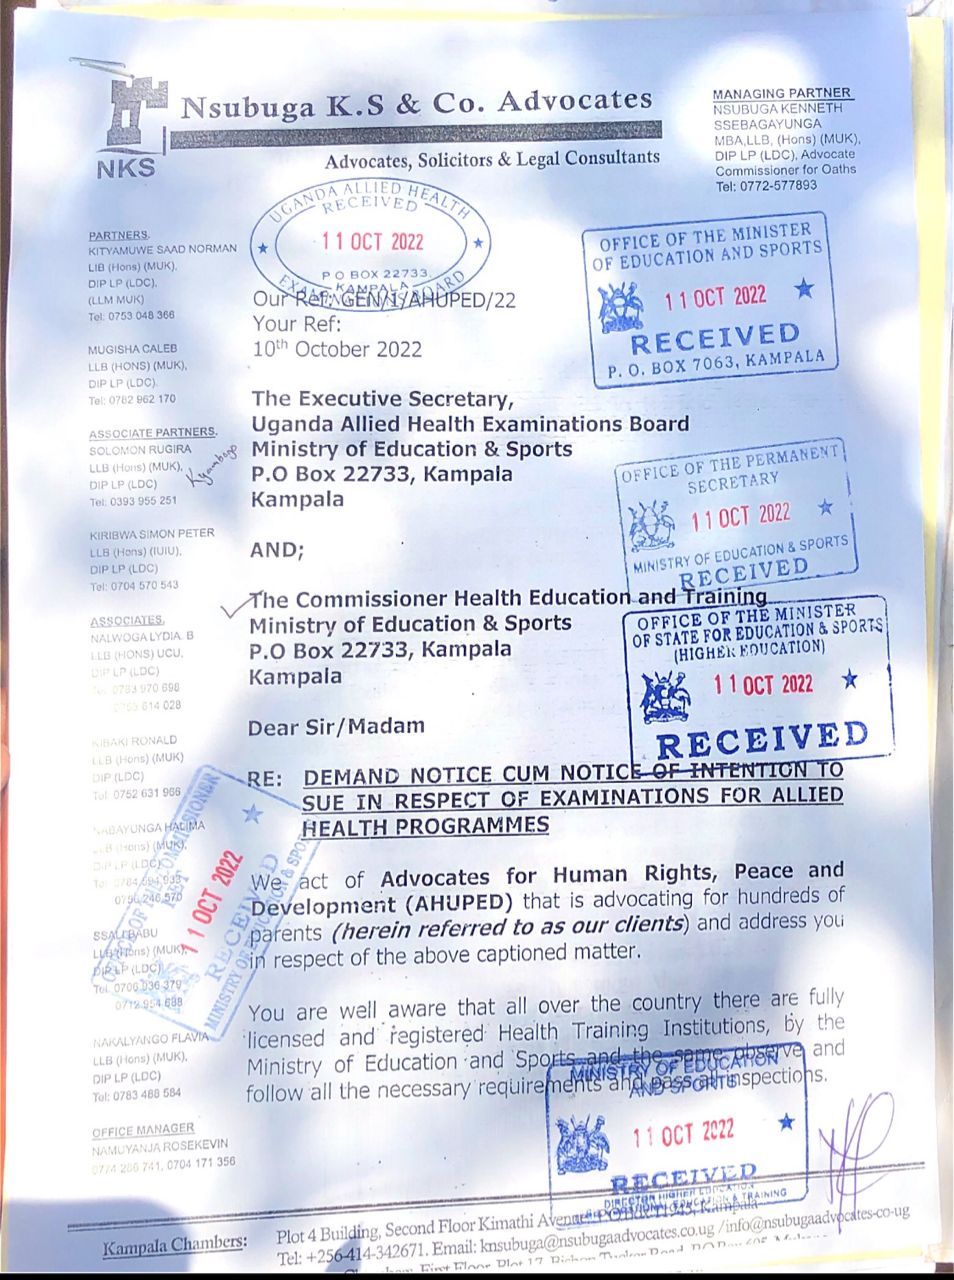 NKS
Nsubuga K.S & Co. Advocates
Advocates, Solicitors & Legal Consultants
MANAGING PARTNER
NSUBUGA KENNETH
SSEBAGAYUNGA
MBA,LLB, (Hons) (MUK),
DIP LP (LDC), Advocate
Commissioner for Oaths
Tel: 0772-577893
PARTNERS.
KITYAMUWE SAAD NORMAN
LIB (Hons) (MUK),
DIP LP (LDC),
(LLM MUK)
Tel: 0753 048 366
MUGISHA CALEB
LLB (HONS) (MUK),
DIP LP (LDC).
Tel: 0782 962 170
ASSOCIATE PARTNERS.
SOLOMON RUGIRA
LLB (Hons) (MUK),
DIP LP (LDC)
Tel: 0393 955 251
Kyambogo
KIRIBWA SIMON PETER
LLB (Hons) (IUIU),
DIP LP (LDC)
Tel: 0704 570 543
ASSOCIATES.
NALWOGA LYDIA. B
LLB (HONS) UCU,
DIP LP (LDC)
0783 970 698
614 028
KIBAKI RONALD
LLB (Hons) (MUK)
DIP (LDC)
Tel: 0752 631 966
NABAYUNGA HALIMA
LLB (Hons) (MUK),
DIP LP (LDC)
SSALI BABU
LLB (Hons) (MUK),
DIP LP (LDC)
Tel: 0706 036 379
0712 954 688
NAKALYANGO FLAVIA
LLB (Hons) (MUK),
DIP LP (LDC)
Tel: 0783 488 584
OFFICE MANAGER
NAMUYANJA ROSEKEVIN
0774 286 741, 0704 171 356
UGANDA ALLIED HEALTH
RECEIVED
11 OCT 2022
P O BOX 22733,
KAMPALA
EXAMINATIONS BOARD
OFFICE OF THE MINISTER
OF EDUCATION AND SPORTS
11 OCT 2022
RECEIVED
P. O. BOX 7063, KAMPALA
Our Ref: GEN/1/AHUPED/22
Your Ref:
10th October 2022
The Executive Secretary,
Uganda Allied Health Examinations Board
Ministry of Education & Sports
P.O Box 22733, Kampala
Kampala
OFFICE OF THE PERMANENT
SECRETARY
11 OCT 2022
MINISTRY OF EDUCATION & SPORTS
RECEIVED
AND;
The Commissioner Health Education and Training
Ministry of Education & Sports
P.O Box 22733, Kampala
Kampala
OFFICE OF THE MINISTER
OF STATE FOR EDUCATION & SPORTS
(HIGHER EDUCATION)
11 OCT 2022
RECEIVED
Dear Sir/Madam
RE: DEMAND NOTICE CUM NOTICE OF INTENTION TO
SUE IN RESPECT OF EXAMINATIONS FOR ALLIED
HEALTH PROGRAMMES
COMMISSIONER
11 OCT 2022
RECEIVED
MINISTRY OF EDUCATION & SPORTS
We act of Advocates for Human Rights, Peace and
Development (AHUPED) that is advocating for hundreds of
parents (herein referred to as our clients) and address you
in respect of the above captioned matter.
You are well aware that all over the country there are fully
licensed and registered Health Training Institutions, by the
Ministry of Education and Sports and the same observe and
follow all the necessary requirements and pass all inspections.
MINISTRY OF EDUCATION
AND SPORTS
11 OCT 2022
RECEIVED
DIRECTOR HIGHER EDUCATION
EDUCATION & TRAINING
Kampala Chambers:
Plot 4 Building, Second Floor Kimathi Avenue, Kampala
Tel: +256-414-342671. Email: knsubuga@nsubugaadvocates.co.ug /info@nsubugaadvocates-co-ug
First Floor, Plot 17